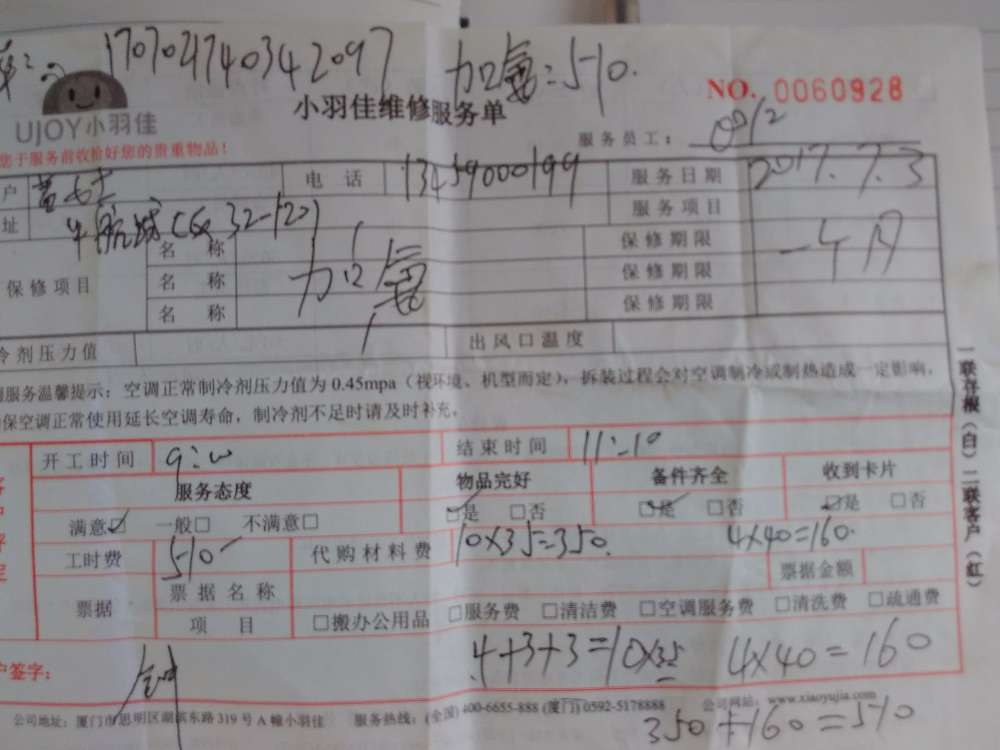 17070217403420​97 加氟=510.
NO. 0060928
UJOY小羽佳 小羽佳维修服务单
您于服务前收拾好您的贵重物品！ 服务员工： 0912
户 黄女士 电 话 13459000199 服务日期 2017.7.3
址 (6X32-120) 服务项目
保修项目 名 称 加氟 保修期限 一个月
名 称 保修期限
名 称 保修期限
冷剂压力值 出风口温度
服务温馨提示：空调正常制冷剂压力值为 0.45mpa（视环境、机型而定），拆装过程会对空调制冷或制热造成一定影响，
保空调正常使用延长空调寿命，制冷剂不足时请及时补充。
开工时间 9:00 结束时间 11:10
服务态度 物品完好 备件齐全 收到卡片
满意☑ 一般□ 不满意□ ☑是 □否 ☑是 □否 ☑是 □否
工时费 510 代购材料费 10×35=350. 4×40=160.
票据 票据名称 票据金额
项 目 □搬办公用品 □服务费 □清洁费 □空调服务费 □清洗费 □疏通费
户签字： 4+3+3=10×35 4×40=160
公司地址：厦门市思明区湖滨东路 319 号 A 幢小羽佳 服务热线：(全国) 400-6655-888 (厦门) 0592-5178888 公司网站：www.xiaoyujia.com
350+160=510
一联存根（白）二联客户（红）